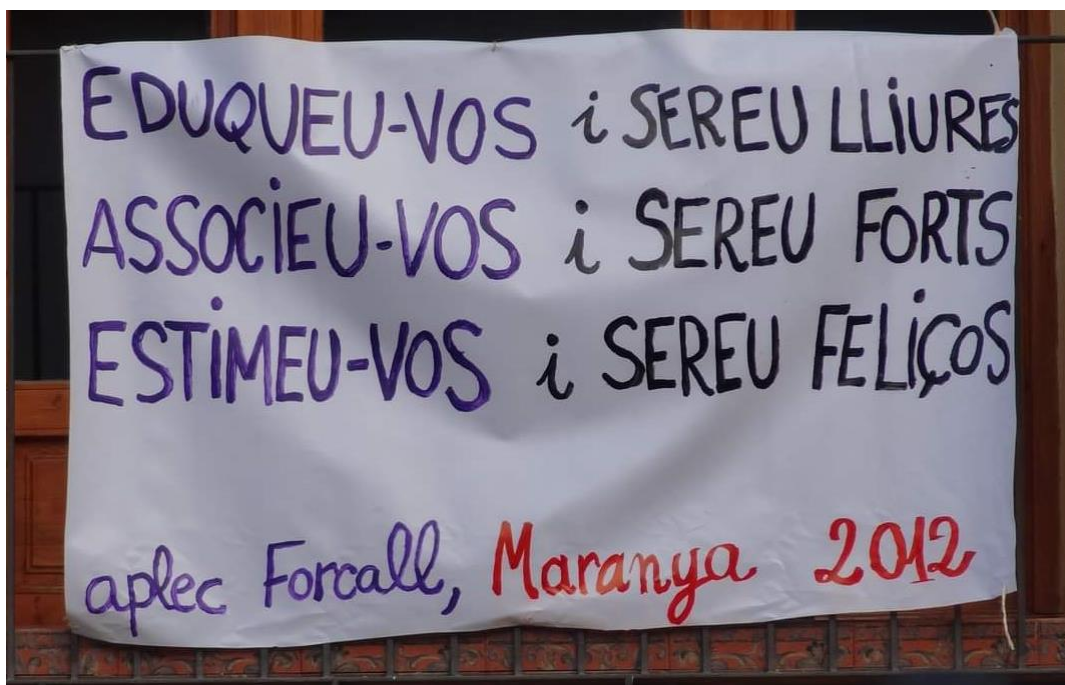 EDUQUEU-VOS i SEREU LLiURES
ASSOCiEU-VOS i SEREU FORTS
ESTiMEU-VOS i SEREU FELiÇOS
aplec Forcall, Maranya 2012